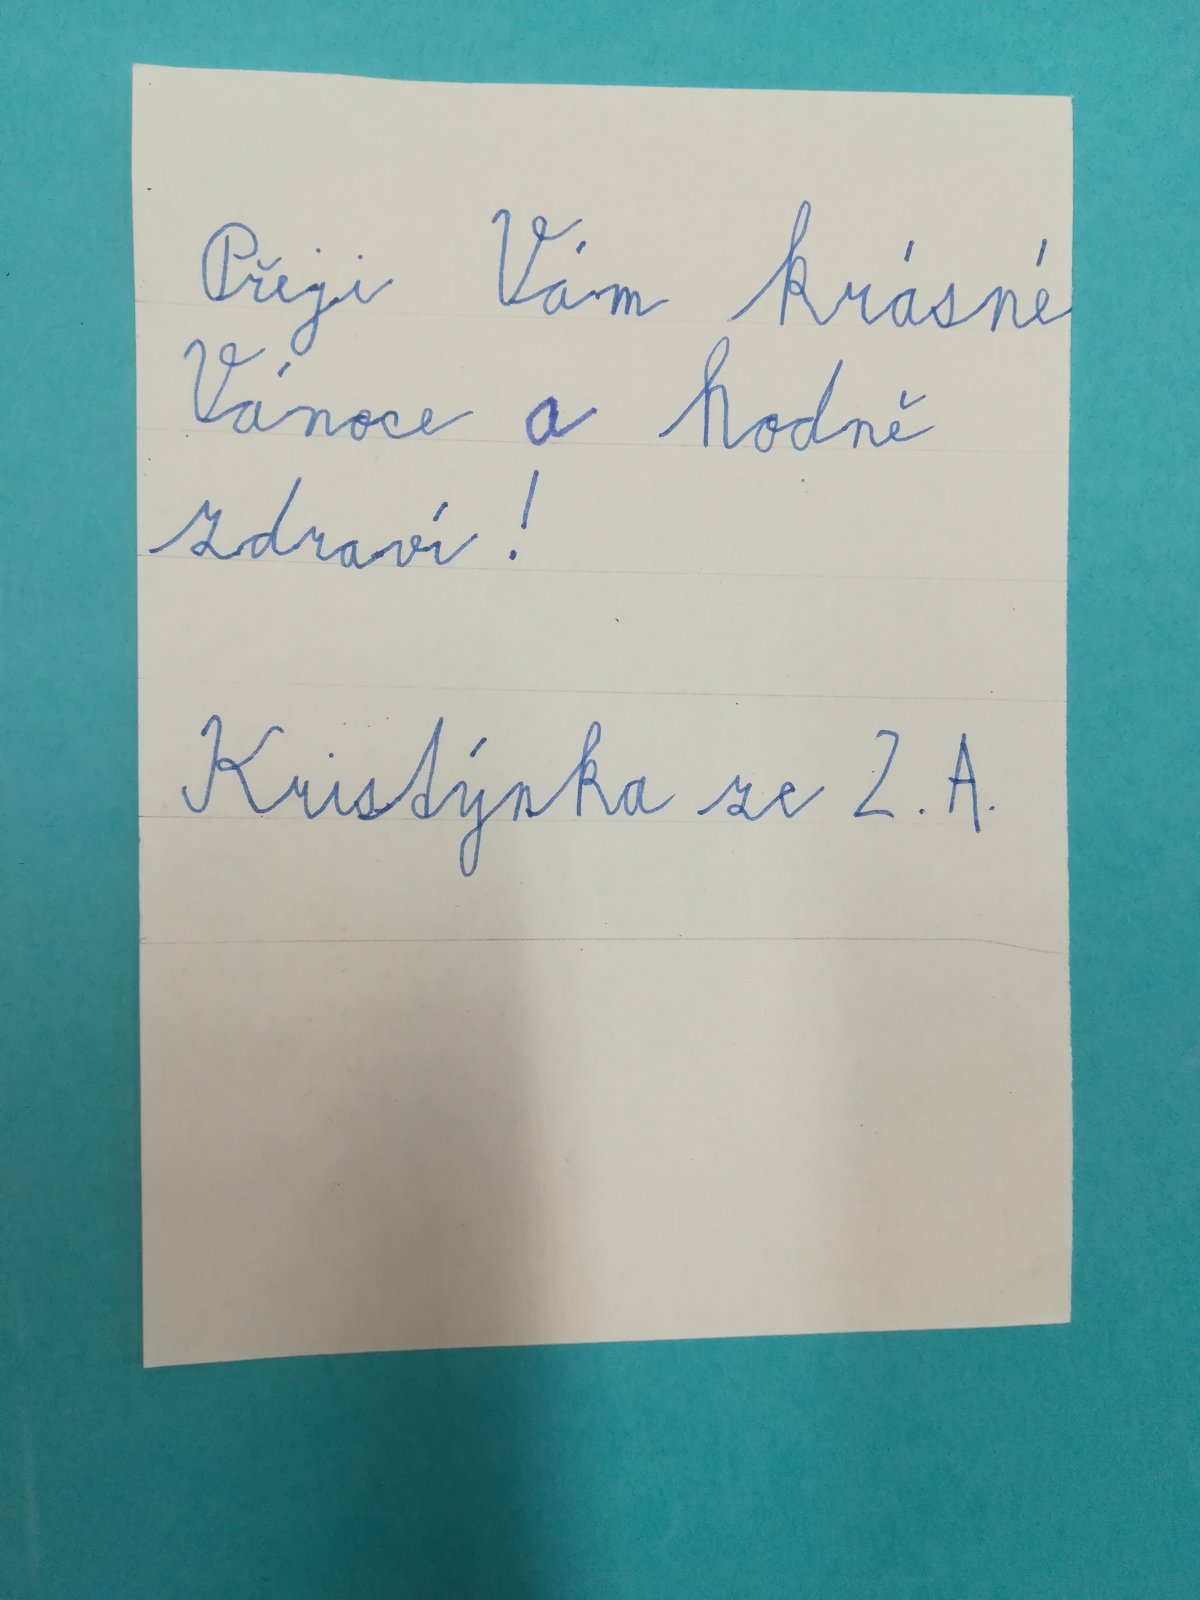 Přeji Vám krásné
Vánoce a hodně
zdraví!
Kristýnka ze 2. A.